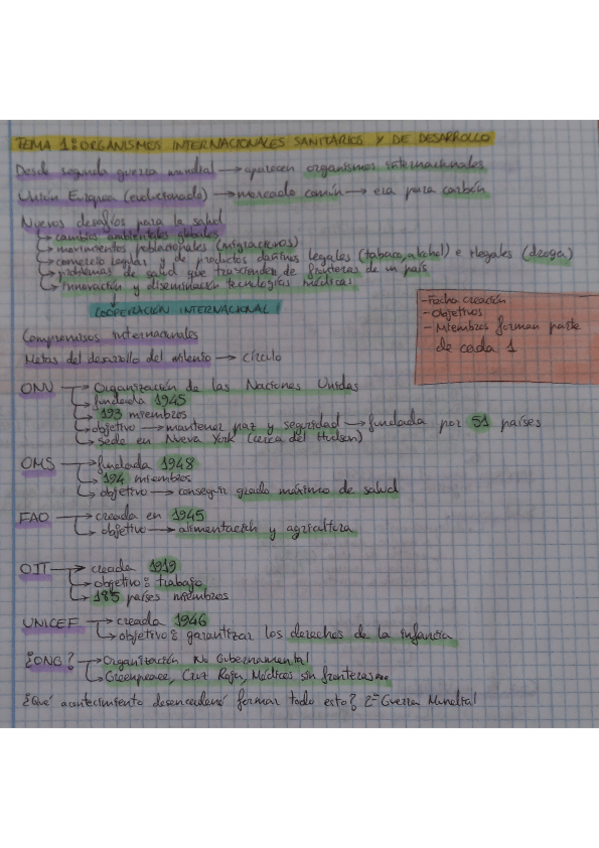 TEMA 1: ORGANISMOS INTERNACIONALES SANITARIOS Y DE DESARROLLO
Desde segunda guerra mundial → aparecen organismos internacionales
Unión Europea (evolucionado) → mercado común → era para carbón
Nuevos desafíos para la salud
↳ cambios ambientales globales
↳ movimientos poblacionales (migraciones)
↳ comercio regular y de productos dañinos legales (tabaco, alcohol) e ilegales (droga)
↳ problemas de salud que trascienden de fronteras de un país
↳ innovación y diseminación tecnologías médicas
COOPERACIÓN INTERNACIONAL
- Fecha creación
- Objetivos
- Miembros forman parte
de cada 1
Compromisos internacionales
Metas del desarrollo del milenio → círculo
ONU → Organización de las Naciones Unidas
↳ fundada 1945
↳ 193 miembros
↳ objetivo → mantener paz y seguridad → fundada por 51 países
↳ Sede en Nueva York (cerca del Hudson)
OMS → fundada 1948
↳ 194 miembros
↳ objetivo → conseguir grado máximo de salud
FAO → creada en 1945
↳ objetivo → alimentación y agricultura
OIT → creada 1919
↳ objetivo: trabajo
↳ 185 países miembros
UNICEF → creada 1946
↳ objetivo: garantizar los derechos de la infancia
¿ONG? → Organización No Gubernamental
↳ Greenpeace, Cruz Roja, Médicos sin fronteras...
¿Qué acontecimiento desencadenó formar todo esto? 2ª Guerra Mundial